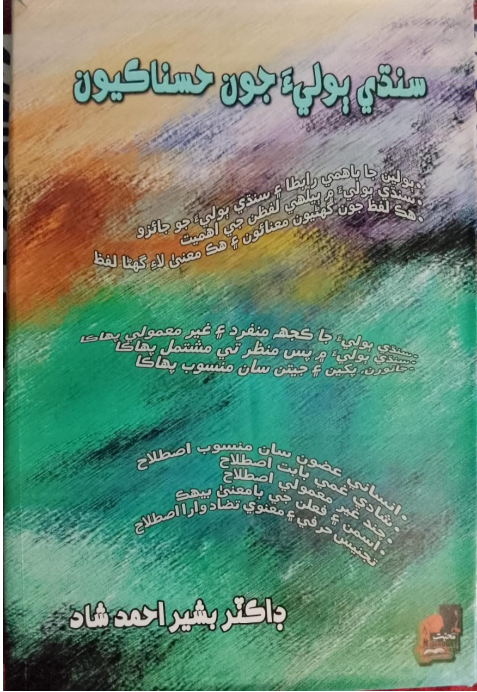 سنڌي ٻوليءَ جون حسناڪيون
•ٻولين جا باهمي رابطا ۽ سنڌي ٻوليءَ جو جائزو
•سنڌي ٻوليءَ ۾ ٻيلهي لفظن جي اهميت
•هڪ لفظ جون گهڻيون معنائون ۽ هڪ معنيٰ لاءِ گهڻا لفظ
•سنڌي ٻوليءَ جا ڪجهہ منفرد ۽ غير معمولي پهاڪا
•سنڌي ٻوليءَ ۾ پس منظر تي مشتمل پهاڪا
•جانورن، پکين ۽ جيتن سان منسوب پهاڪا
•انساني عضون سان منسوب اصطلاح
•شادي غمي بابت اصطلاح
•چند غير معمولي اصطلاح
•اسمن ۽ فعلن جي بامعنيٰ بيهڪ
تجنيس حرفي ۽ معنوي تضاد وارا اصطلاح
ڊاڪٽر بشير احمد شاد